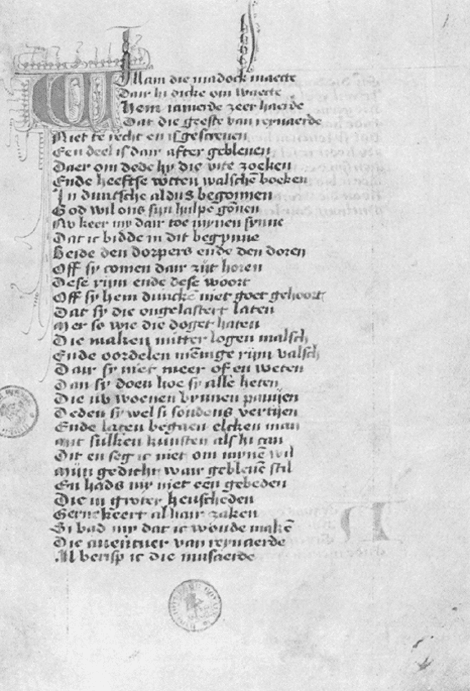 Willam die madock maecte
Dair hi dicke om waecte
Hem iamerde zeer haerde
Dat die geeste van reynaerde
Niet te recht en is gescreuen
Een deel is dair after gebleuen
Daer om dede hy die vite zoeken
Ende heeftse wtten walschē boeken
In duutsche aldus begonnen
God wil ons sijn hulpe gōnen
Nv keer my dair toe mynen synne
Dat ic bidde in dit begynne
Beide den dorpers ende den doren
Off sy comen dair zijt horen
Dese rijm ende dese woort
Off sy hem duncкē niet goet gehoort
Dat sy die ongelastert laten
Mer so wie die doget haten
Die maken mitter logen malsch
Ende oordelen mēnige rijm valsch
Dair sy niet meer of en weten
Dan sy doen hoe sy alle heten
Die nv woenen bynnen pauijen
Deden sy wel si soudens vertijen
Ende laten begaen elcken man
mit sulken kunsten als hi can
Dit en seg ic niet om mynen wil
Mijn gedicht wair gebleuē stil
En hads my niet een gebeden
Die in groter heuscheden
Gerne keert al hair zaken
Si bad my dat ic woude makē
Die auentuer van reynaerde
Al berisp ic die musaerde